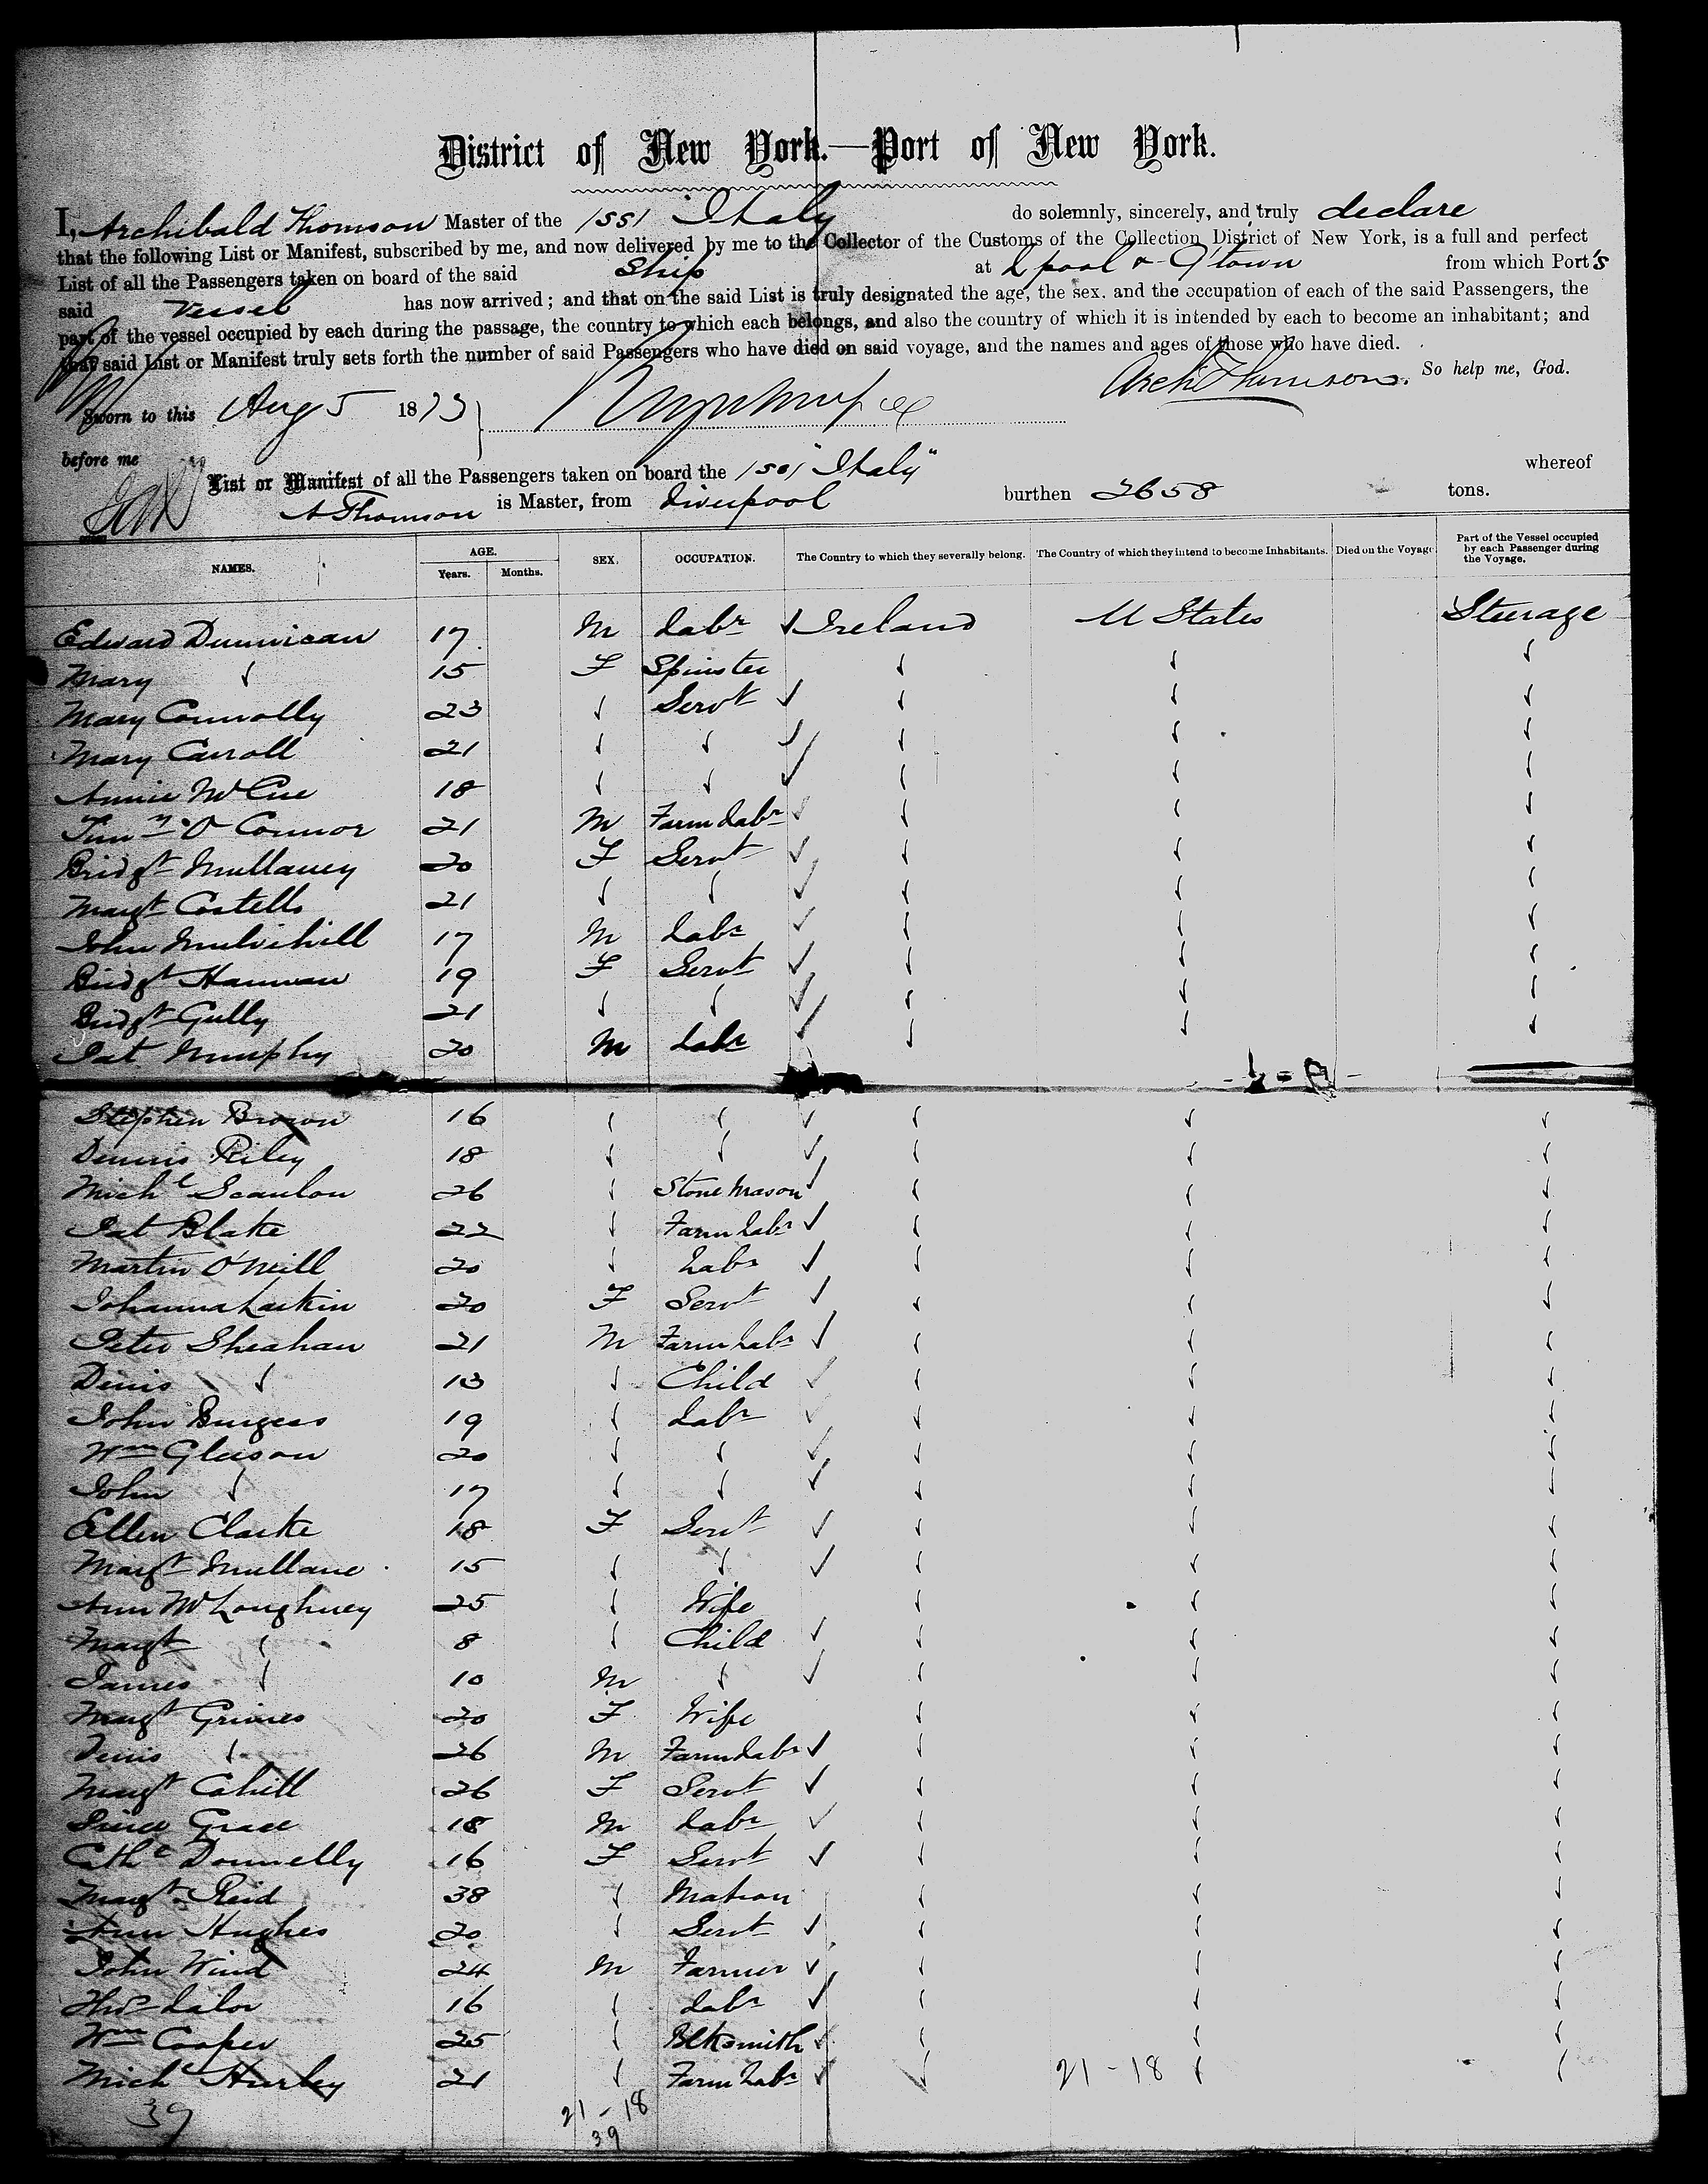 District of New York.—Port of New York.
I, Archibald Thomson Master of the SS "Italy do solemnly, sincerely, and truly declare
that the following List or Manifest, subscribed by me, and now delivered by me to the Collector of the Customs of the Collection District of New York, is a full and perfect
List of all the Passengers taken on board of the said Ship at Lpool & Qtown from which Port's
said Vessel has now arrived; and that on the said List is truly designated the age, the sex, and the occupation of each of the said Passengers, the
part of the vessel occupied by each during the passage, the country to which each belongs, and also the country of which it is intended by each to become an inhabitant; and
that said List or Manifest truly sets forth the number of said Passengers who have died on said voyage, and the names and ages of those who have died.
So help me, God.
Archd Thomson.
Sworn to this Aug 5 1873
before me
List or Manifest of all the Passengers taken on board the "Italy" whereof
A Thomson is Master, from Liverpool burthen 2658 tons.
NAMES. AGE. SEX. OCCUPATION. The Country to which they severally belong. The Country of which they intend to become Inhabitants. Died on the Voyage Part of the Vessel occupied by each Passenger during the Voyage.
Years. Months.
Edward Dunnican 17 M Labr Ireland U States Steerage
Mary 15 F Spinster
Mary Connolly 23 Servt
Mary Carroll 21
Annie McCue 18
Timy O Connor 21 M Farm Labr
Bridgt Mullaney 20 F Servt
Margt Costello 21
John Mulvihill 17 M Labr
Bridgt Hannan 19 F Servt
Bridgt Gully 21
Pat Murphy 20 M Labr
Stephen Brown 16
Dennis Riley 18
Michl Scanlon 26 Stone Mason
Pat Blake 22 Farm Labr
Martin O'Neill 20 Labr
Johanna Larkin 20 F Servt
Peter Sheahan 21 M Farm Labr
Denis 13 Child
John Burgess 19 Labr
Wm Gleeson 20
John 17
Ellen Clarke 18 F Servt
Margt Mullane 15
Ann McLoughney 25 Wife
Margt 8 Child
James 10 M
Margt Grimes 20 F Wife
Denis 26 M Farm Labr
Margt Cahill 26 F Servt
Grace 18 M Labr
Cathe Donnelly 16 F Servt
Margt Reid 38 Matron
Ann Hughes 20 Servt
John Wind 24 M Farmer
Thos Lalor 16 Labr
Wm Cooper 25 Blksmith
Michl Hurley 21 Farm Labr 21-18
39 21-18
39